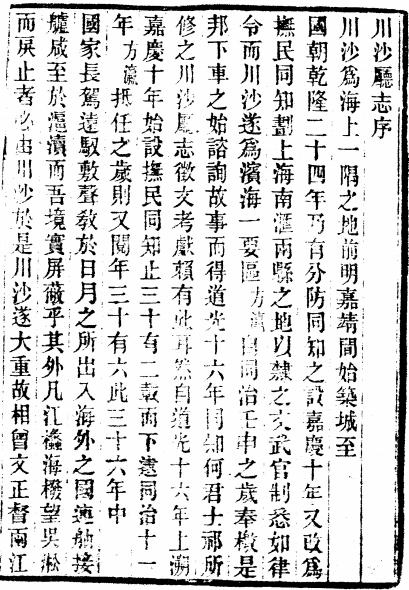 川沙廳志序
川沙爲海上一隅之地前明嘉靖間始築城至
國朝乾隆二十四年乃有分防同知之設嘉慶十年又改爲
撫民同知劃上海南滙兩縣之地以隸之文武官制悉如律
令而川沙遂爲濱海一要區方瀛自同治壬申之歲奉檄是
邦下車之始諮詢故事而得道光十六年同知何君士祁所
修之川沙廳志徵文考獻賴有此耳然自道光十六年上溯
嘉慶十年始設撫民同知止三十有二載而下逮同治十一
年方瀛抵任之歲則又閱年三十有六此三十六年中
國家長駕遠馭敷聲敎於日月之所出入海外之國連舳接
艫咸至於滬瀆而吾境實屏蔽乎其外凡江艤海艭望吳淞
而戾止者必由川沙於是川沙遂大重故相曾文正督兩江